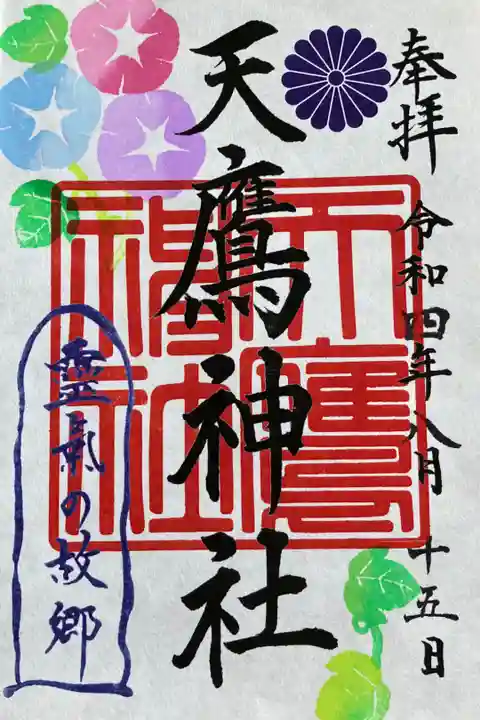 奉拝
令和四年八月十五日
天鷹神社
天鷹神社
霊氣の故郷